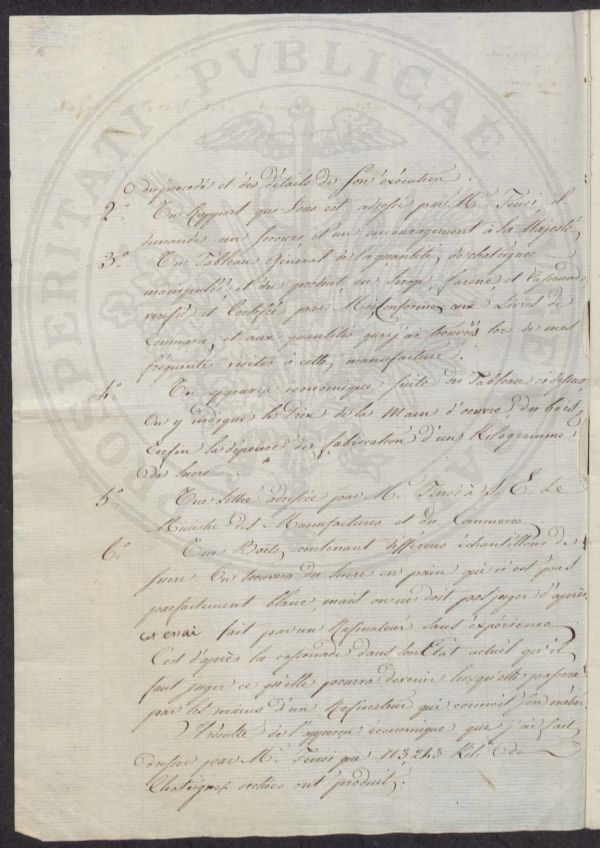 du procédé et des détails de son exécution.
2.° Un Rapport que vous est adressé par M.r Teusi il
demande un secours et un encouragement à Sa Majesté
3.° Un Tableau Général de la quantité de chataignes
manipulées et du produit en Sirop, farine et Cassonade
vérifié et certifié par Moi, Conforme aux Livres de
Commerce, et aux quantités que j'ai trouvés lors de mes
fréquentes visites à cette manufacture.
4.° Un apperçu économique suite du Tableau ci dessus
On y indique le Prix de la Main d'oeuvre, du bois,
enfin la dépense de fabrication d'un Kilogramme
de Sucre.
5.° Une Lettre adressée par M.r Teusi à S. E. Le
Ministre des Manufactures et du Commerce.
6.° Une Boëte, contenant différens échantillons de
sucre. On trouvera du Sucre en pain qui n'est pas
parfaitement blanc, mais on ne doit pas juger d'après
cet essai fait par un Rafinateur sans expérience.
C'est d'après la cassonade dans son Etat actuel qu'il
faut juger ce qu'elle pourra devenir lorsqu'elle passera
par les mains d'un Rafinateur qui connoit son métier.
Il résulte de l'apperçu économique que j'ai fait
dresser par M.r Teusi que 113243 Kil.s de
Chataignes sechées ont produit.
POSTERITATI PVBLICAE